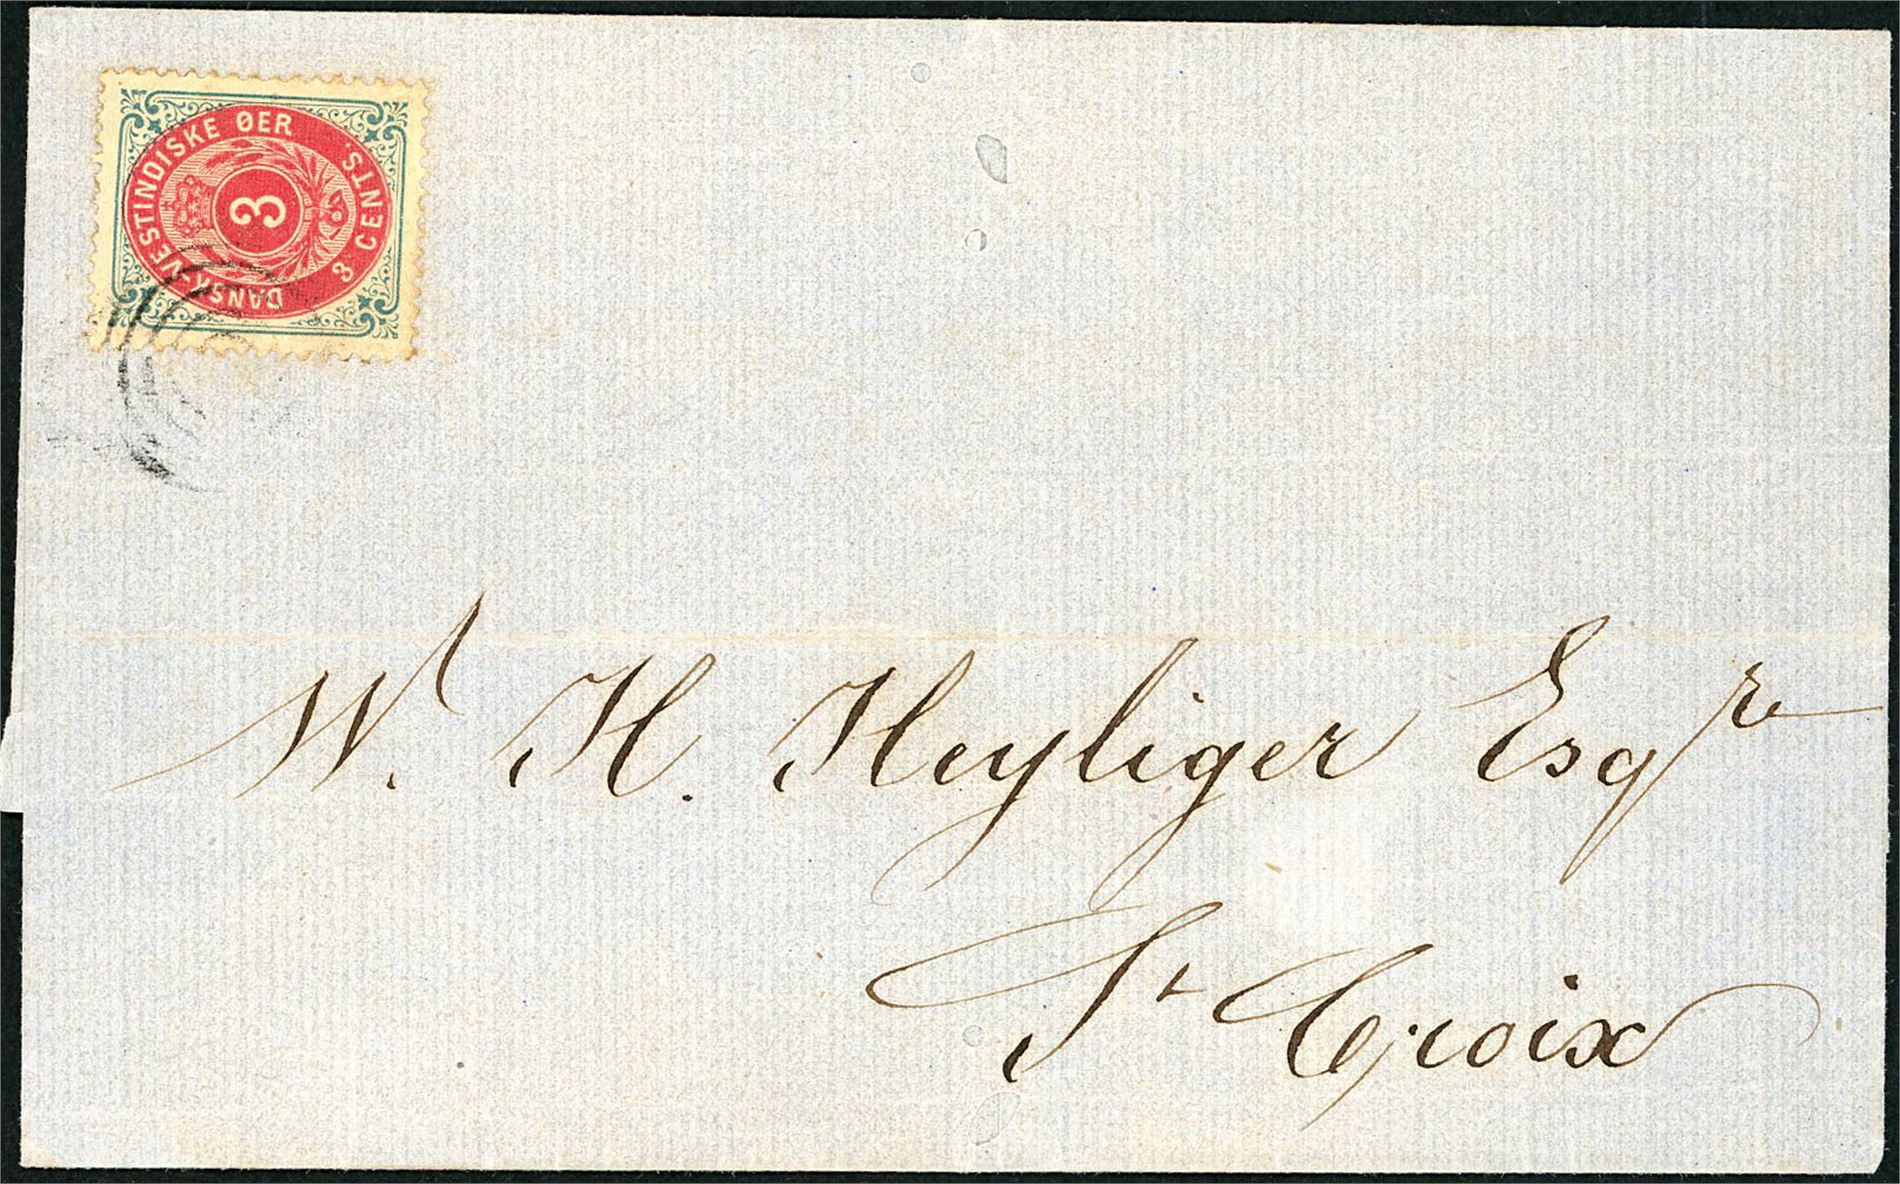 DANSK-VESTINDISKE ØER
3 CENTS.
3
W. H. Heyliger Esqre
St Croix